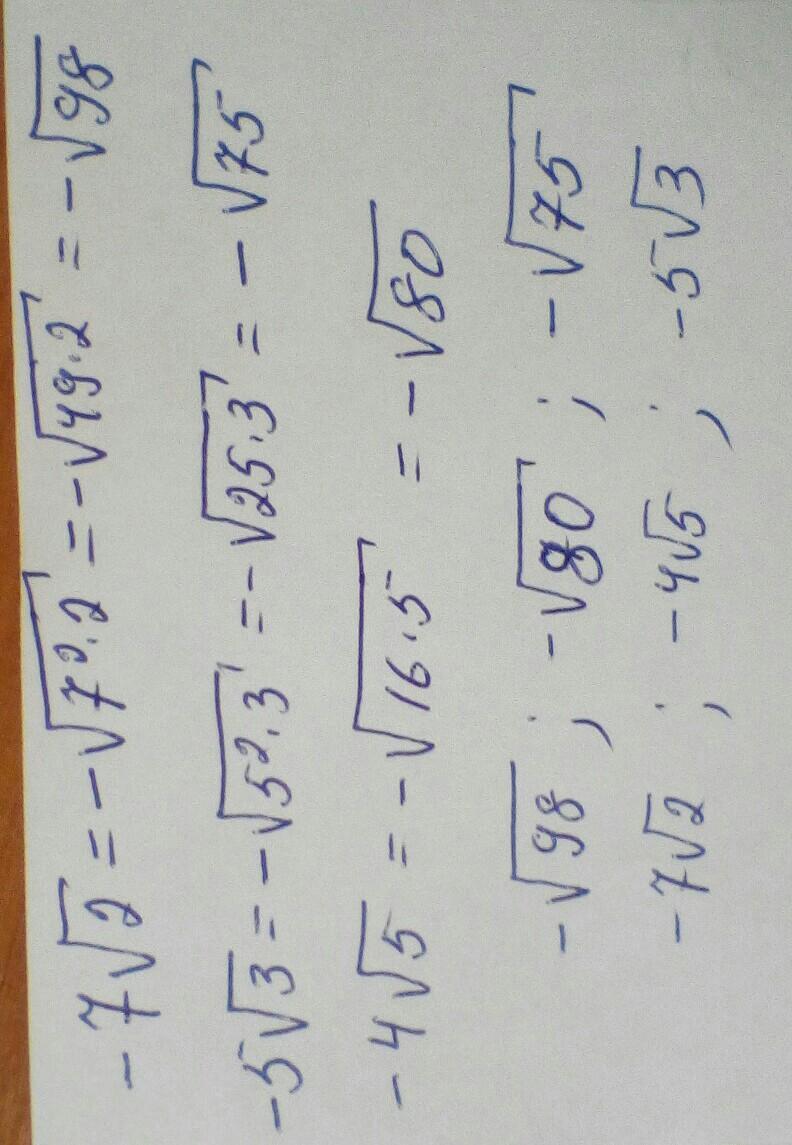 -7√2 = -√7²·2 = -√49·2 = -√98
-5√3 = -√5²·3 = -√25·3 = -√75
-4√5 = -√16·5 = -√80
-√98 ; -√80 ; -√75
-7√2 ; -4√5 ; -5√3